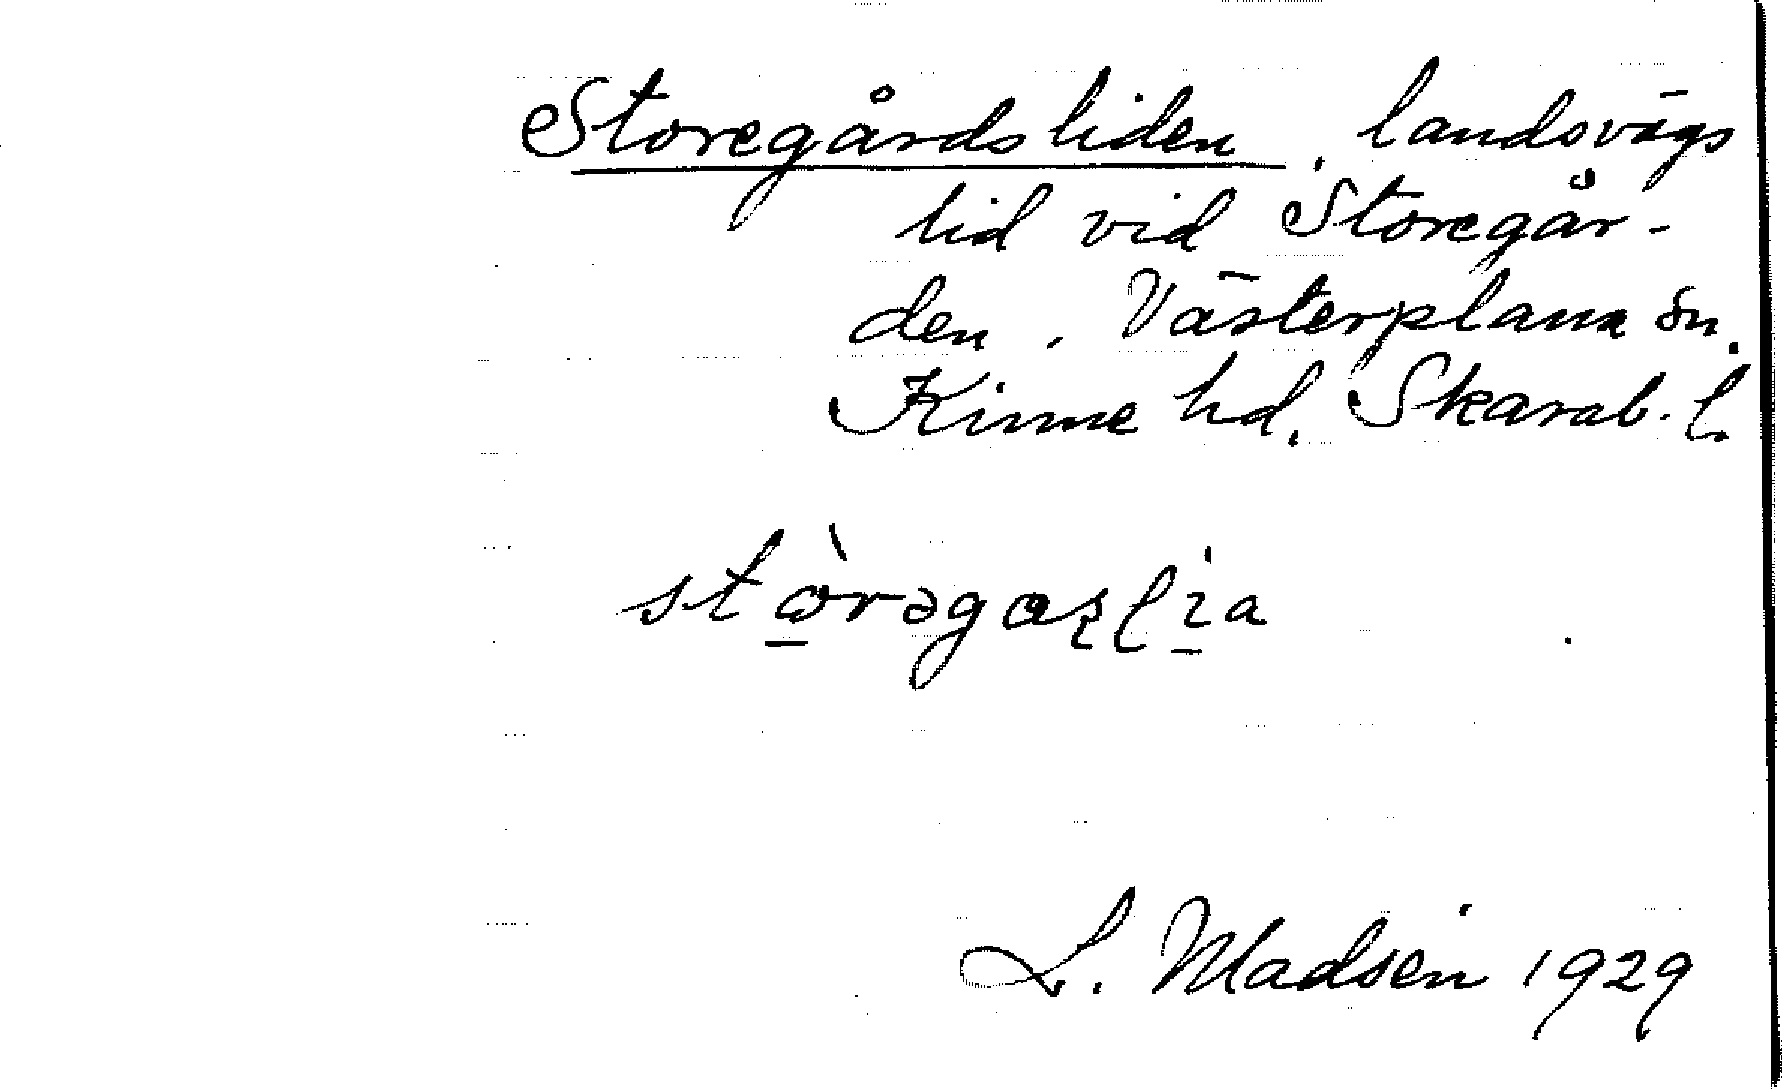 Storegårdsliden, landsvägs
lid vid Storegår-
den, Västerplana sn.
Kinne hd, Skarab. l.
L. Madsén 1929